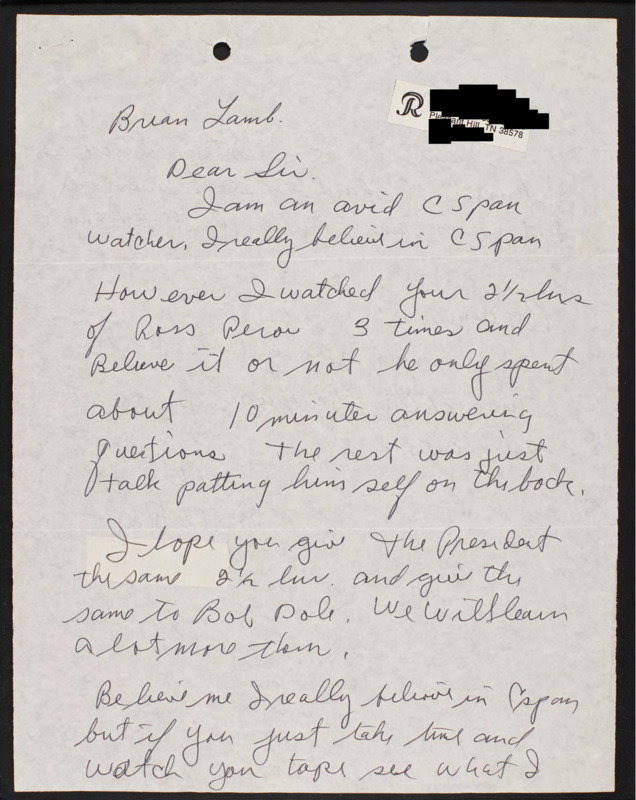 R
Pleasant Hill, TN 38578
Brian Lamb.
Dear Sir.
I am an avid C Span
watcher. I really believe in C Span
However I watched your 2½ hrs
of Ross Perou 3 times and
Believe it or not he only spent
about 10 minutes answering
questions The rest was just
talk patting him self on the back.
I hope you give the President
the same 2½ hrs. and give the
same to Bob Dole. We will learn
a lot more then.
Believe me I really believe in Cspan
but if you just take time and
watch you tape see what I